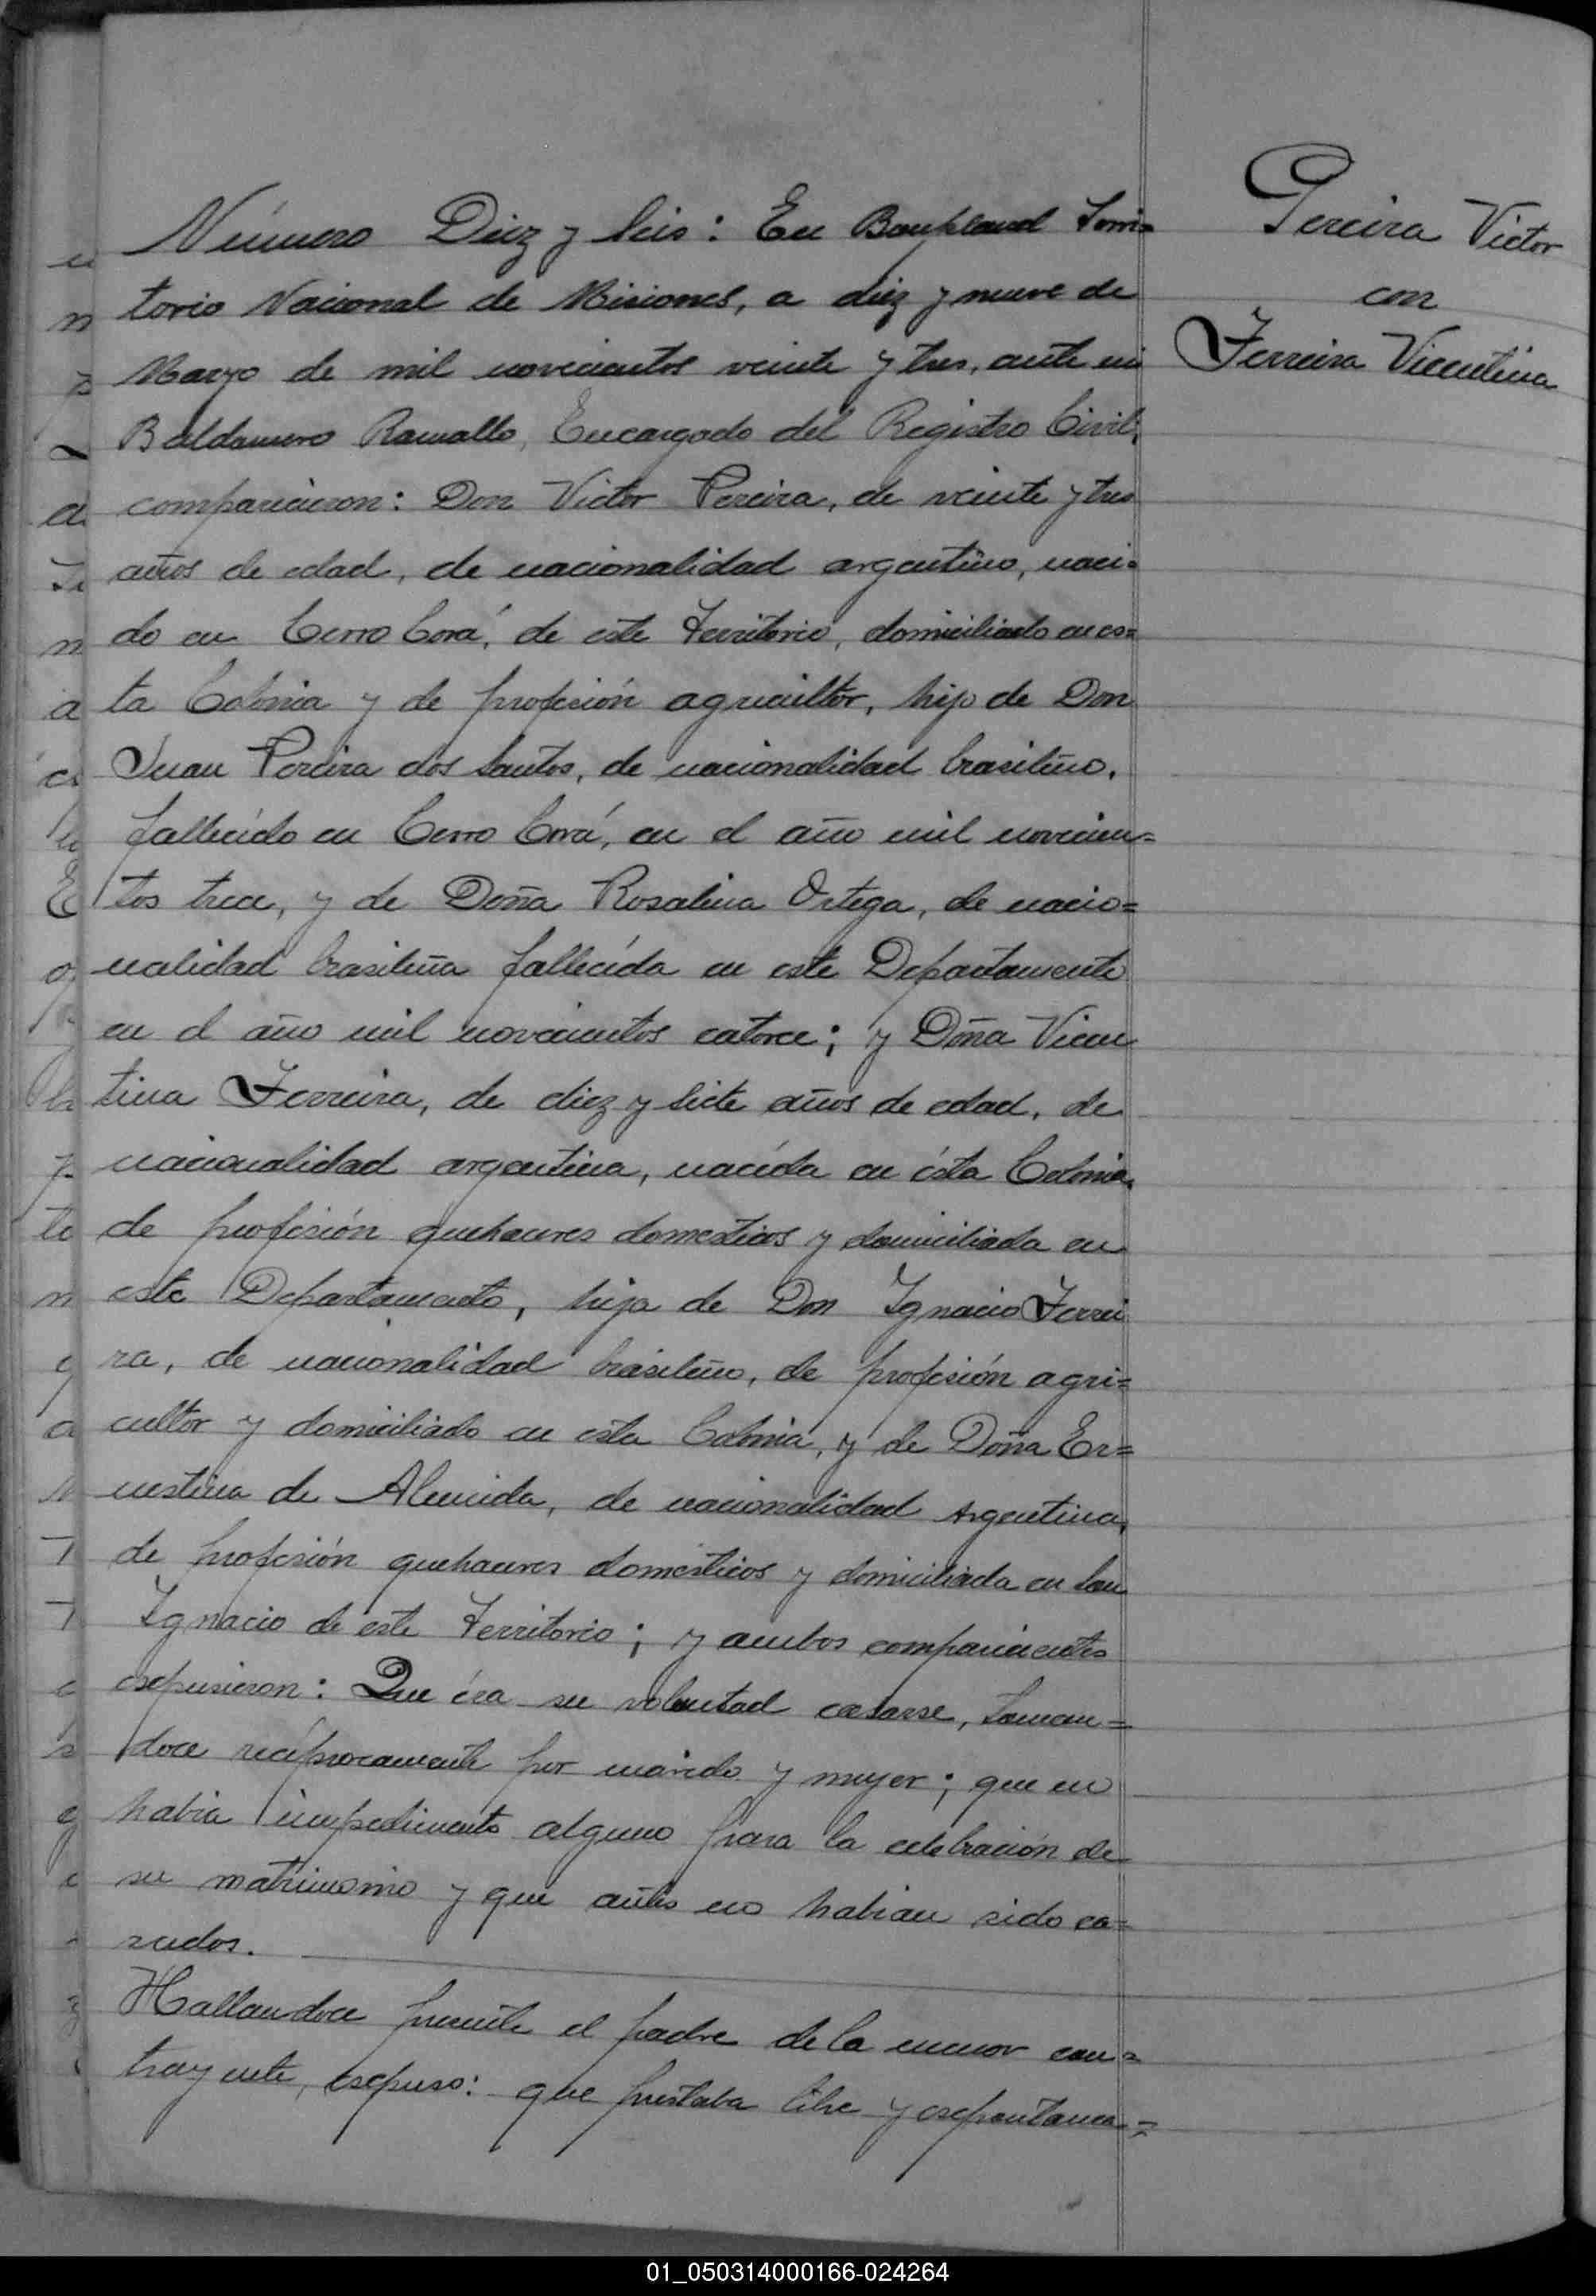 Número Diez y Seis: En Bonpland Terri=
torio Nacional de Misiones, a diez y nueve de
Marzo de mil novecientos veinte y tres, ante mi
Baldomero Ramallo, Encargado del Registro Civil,
comparecieron: Don Victor Pereira, de veinte y tres
años de edad, de nacionalidad argentino, naci=
do en Cerro Corá, de este Territorio, domiciliado en es=
ta Colonia y de profesión agricultor, hijo de Don
Juan Pereira dos Santos, de nacionalidad brasileño,
fallecido en Cerro Corá, en el año mil novecien=
tos trece, y de Doña Rosalina Ortega, de nacio=
nalidad brasileña fallecída en este Departamento
en el año mil novecientos catorce; y Doña Vicen
tina Ferreira, de diez y siete años de edad, de
nacionalidad argentina, nacída en ésta Colonia,
de profesión quehaceres domesticos y domiciliada en
este Departamento, hija de Don Ignacio Ferrei
ra, de nacionalidad brasileño, de profesión agri=
cultor y domiciliado en esta Colonia, y de Doña Er=
nestina de Almeida, de nacionalidad Argentina,
de profesión quehaceres domésticos y domiciliada en San
Ignacio de este Territorio; y ambos comparecientes
espusieron: Que éra su voluntad casarse, toman=
doce recíprocamente por marido y mujer; que no
habia impedimento alguno para la celebración de
su matrimonio y que antes no habian sido ca=
sados.
Hallandoce presente el padre de la menor con=
trayente, espuso: que prestaba libre y espontanea=
Pereira Victor
con
Ferreira Vicentina
01_050314000166-024264